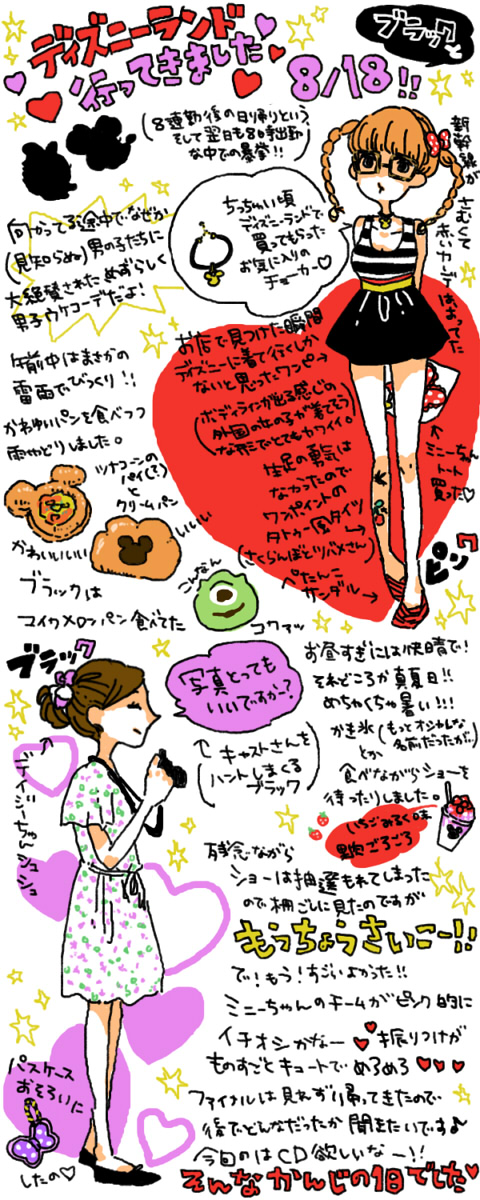 ブラックと
ディズニーランド
行ってきました
8/18!!
(8連勤後の日帰りという
そして翌日も8時出勤
な中での暴挙!!)
新幹線が
さむくて
赤いカーデ
はおってた
ちっちゃい頃
ディズニーランドで
買ってもらった
お気に入りの
チョーカー♡
向かってる途中でなぜか
(見知らぬ)男の子たちに
大絶賛されためずらしく
男子ウケコーデだよ!
お店で見つけた瞬間
ディズニーに着て行くしか
ないと思ったワンピ→
(ボディラインが出る感じの
外国の女の子が着てそう
な形でとてもカワイイ。)
生足の勇気は
なかったので
ワンポイントの
タトゥー風タイツ
(さくらんぼとツバメさん)→
ぺたんこ
サンダル→
↑
ミニーちゃん
トート
買った♡
ピンク
午前中はまさかの
雷雨でびっくり!!
かわゆいパンを食べつつ
雨やどりしました。
ツナコーンの
パイ(?)
と
クリームパン
かわいいいい
いいいい
ブラックは
マイクメロンパン食べてた
こんなん
コワァッ
ブラック
デイジーちゃん
シュシュ
写真とっても
いいですか〜?
↑
(キャストさんを
ハントしまくる
ブラック)
お昼すぎには快晴で!
それどころか真夏日!!
めちゃくちゃ暑い!!!
かき氷(もっとオシャレな
とか 名前だったが)
食べながらショーを
待ったりしました。
いちごみるく味
果肉ごろごろ
残念ながら
ショーは抽選もれてしまった
ので柵ごしに見たのですが
もうちょうさいこー!!
で!もう!すごいよかった!!
ミニーちゃんのチームがピンク的に
イチオシかなー♥振りつけが
ものすごとキュートでめろめろ♥♥♥
ファイナルは見れず帰ってきたので
後でどんなだったか聞きたいです♪
今回のはCD欲しいなー!!
そんなかんじの1日でした♥
パスケース
おそろいに
したの♡